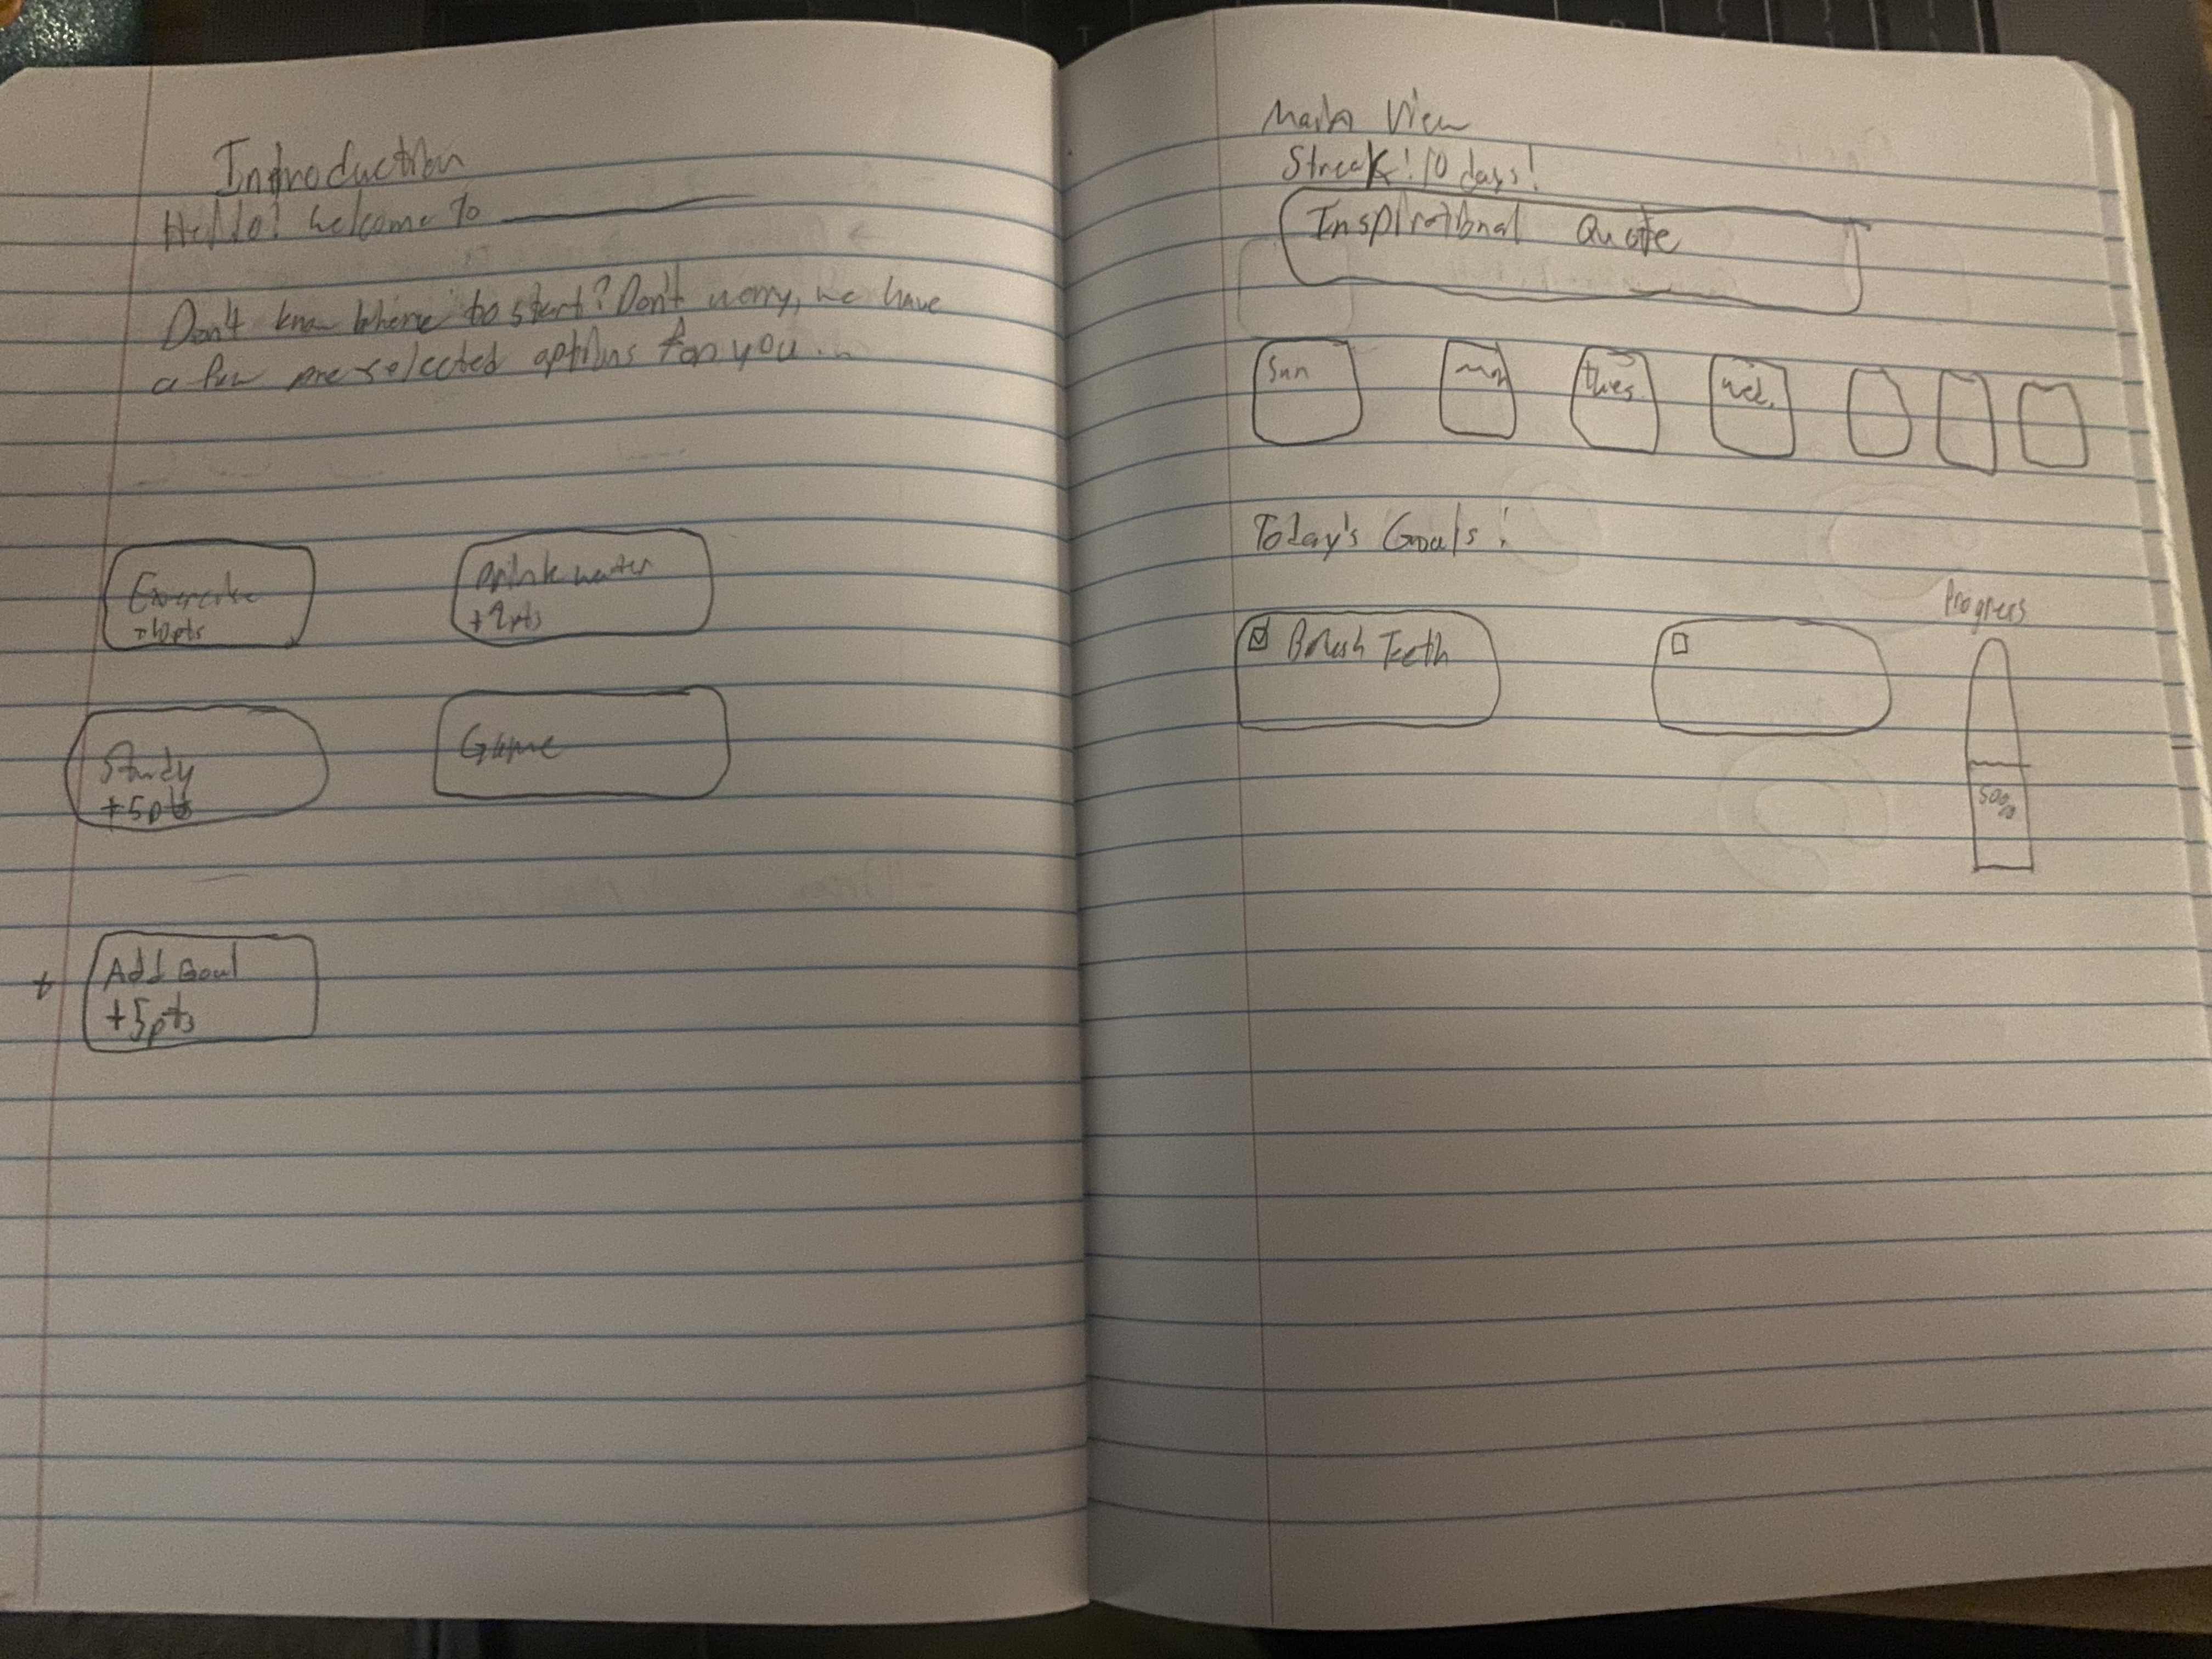 Introduction
Hello! Welcome to
Don't know where to start? Don't worry, we have
a few pre-selected options for you.
Exercise
+10pts
Drink water
+2pts
Study
+5pts
Game
+
Add Goal
+5pts
Main View
Streak! 10 days!
Inspirational Quote
Sun
Mon
Tues.
Wed.
Today's Goals:
Brush Teeth
Progress
50%